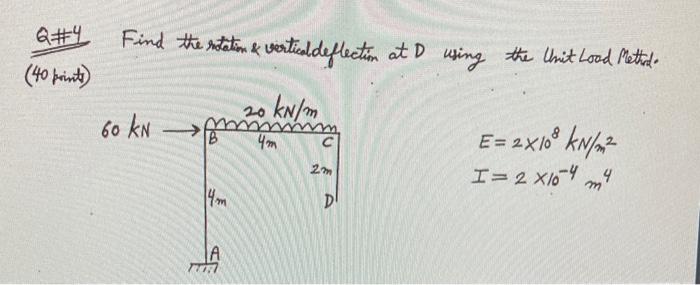 Q#4 Find the rotation & vertical deflection at D using the Unit Load Method.
(40 points)
20 kN/m
60 kN
B 4m C
E = 2×10⁸ kN/m²
2m
I = 2 ×10⁻⁴ m⁴
4m D
A